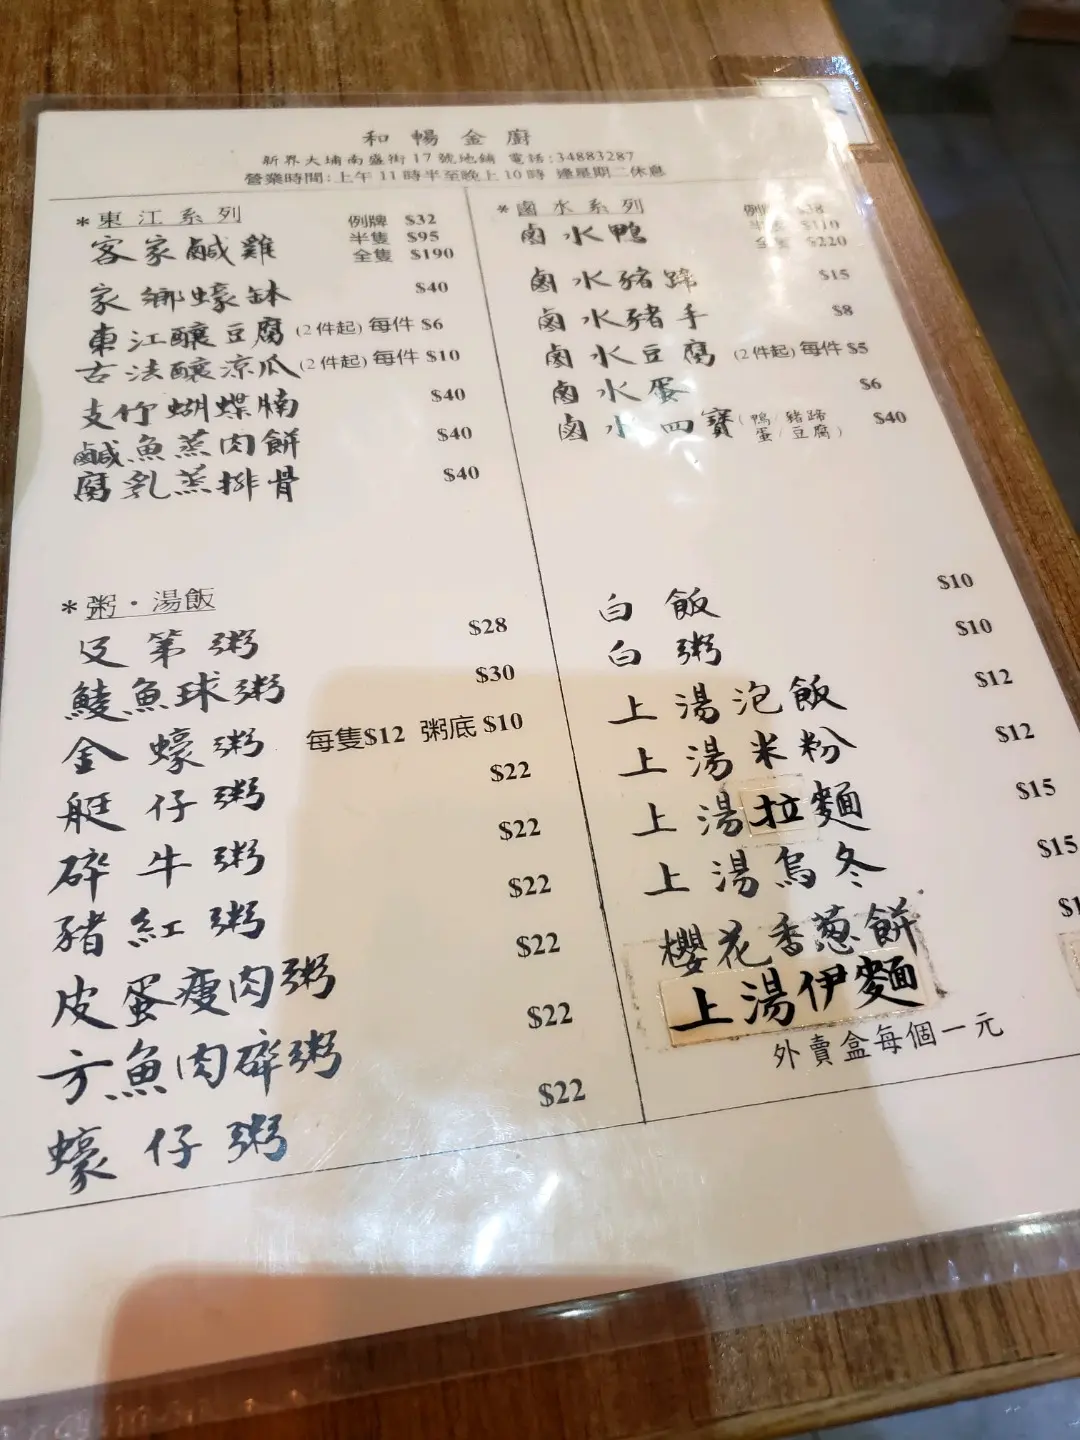 和暢金廚
新界大埔南盛街17號地鋪 電話:34883287
營業時間:上午11時半至晚上10時 逢星期二休息
*東江系列
客家鹹雞 例牌 $32
半隻 $95
全隻 $190
家鄉蠔缽 $40
東江釀豆腐 (2件起) 每件 $6
古法釀涼瓜 (2件起) 每件 $10
支竹蝴蝶腩 $40
鹹魚蒸肉餅 $40
腐乳蒸排骨 $40
*鹵水系列
鹵水鴨 例牌
半隻 $110
全隻 $220
鹵水豬蹄 $15
鹵水豬手 $8
鹵水豆腐 (2件起) 每件 $5
鹵水蛋 $6
鹵水四寶 (鴨/豬蹄 $40
蛋/豆腐)
*粥·湯飯
及第粥 $28
鯪魚球粥 $30
金蠔粥 每隻$12 粥底 $10
艇仔粥 $22
碎牛粥 $22
豬紅粥 $22
皮蛋瘦肉粥 $22
方魚肉碎粥 $22
蠔仔粥 $22
白飯 $10
白粥 $10
上湯泡飯 $12
上湯米粉 $12
上湯拉麵 $15
上湯烏冬 $15
櫻花香蔥餅
上湯伊麵
外賣盒每個一元